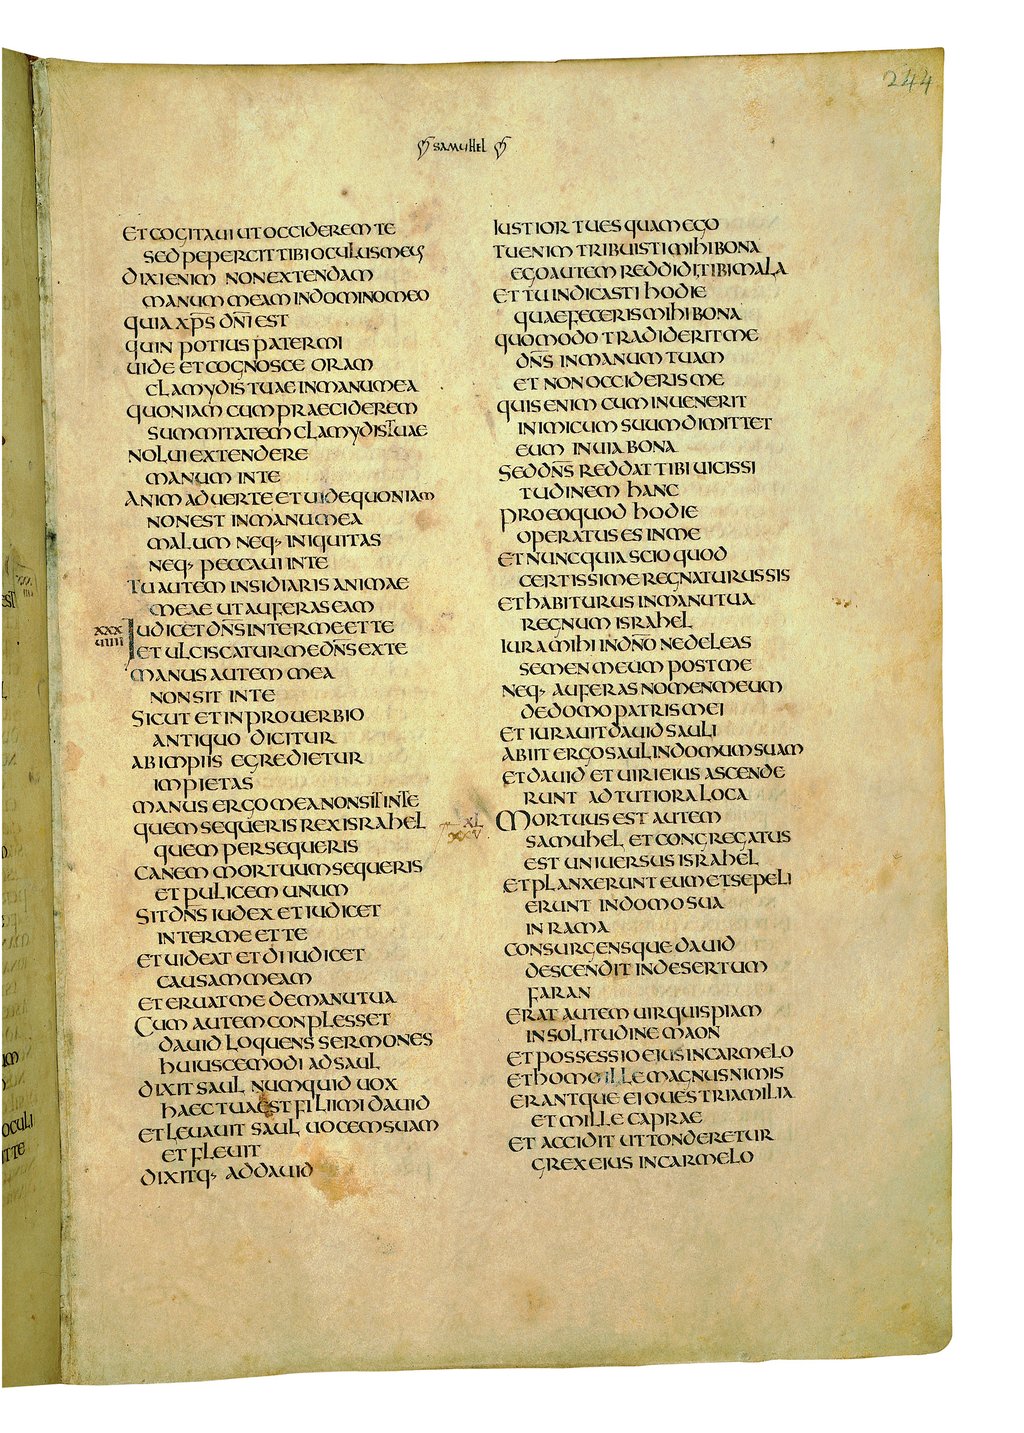 244
SAMUHEL
ET COGITAUI UT OCCIDEREM TE
SED PEPERCIT TIBI OCULUS MEUS
DIXI ENIM NON EXTENDAM
MANUM MEAM IN DOMINO MEO
QUIA XP̄S DN̄I EST
QUIN POTIUS PATER MI
UIDE ET COGNOSCE ORAM
CLAMYDIS TUAE IN MANU MEA
QUONIAM CUM PRAECIDEREM
SUMMITATEM CLAMYDIS TUAE
NOLUI EXTENDERE
MANUM IN TE
ANIMADUERTE ET UIDE QUONIAM
NON EST IN MANU MEA
MALUM NEQ· INIQUITAS
NEQ· PECCAUI IN TE
TU AUTEM INSIDIARIS ANIMAE
MEAE UT AUFERAS EAM
XXX UIIII
IUDICET DN̄S INTER ME ET TE
ET ULCISCATUR ME DN̄S EX TE
MANUS AUTEM MEA
NON SIT IN TE
SICUT ET IN PROUERBIO
ANTIQUO DICITUR
AB IMPIIS EGREDIETUR
IMPIETAS
MANUS ERGO MEA NON SIT IN TE
QUEM SEQUERIS REX ISRAHEL
QUEM PERSEQUERIS
CANEM MORTUUM SEQUERIS
ET PULICEM UNUM
SIT DN̄S IUDEX ET IUDICET
INTER ME ET TE
ET UIDEAT ET DIIUDICET
CAUSAM MEAM
ET ERUAT ME DE MANU TUA
CUM AUTEM CONPLESSET
DAUID LOQUENS SERMONES
HUIUSCEMODI AD SAUL
DIXIT SAUL NUMQUID UOX
HAEC TUA EST FILI MI DAUID
ET LEUAUIT SAUL UOCEM SUAM
ET FLEUIT
DIXITQ· AD DAUID
IUSTIOR TU ES QUAM EGO
TU ENIM TRIBUISTI MIHI BONA
EGO AUTEM REDDIDI TIBI MALA
ET TU INDICASTI HODIE
QUAE FECERIS MIHI BONA
QUOMODO TRADIDERIT ME
DN̄S IN MANUM TUAM
ET NON OCCIDERIS ME
QUIS ENIM CUM INUENERIT
INIMICUM SUUM DIMITTET
EUM IN UIA BONA
SED DN̄S REDDAT TIBI UICISSI
TUDINEM HANC
PRO EO QUOD HODIE
OPERATUS ES IN ME
ET NUNC QUIA SCIO QUOD
CERTISSIME REGNATURUS SIS
ET HABITURUS IN MANU TUA
REGNUM ISRAHEL
IURA MIHI IN DN̄O NE DELEAS
SEMEN MEUM POST ME
NEQ· AUFERAS NOMEN MEUM
DE DOMO PATRIS MEI
ET IURAUIT DAUID SAULI
ABIIT ERGO SAUL IN DOMUM SUAM
ET DAUID ET UIRI EIUS ASCENDE
RUNT AD TUTIORA LOCA
XL
XXV
MORTUUS EST AUTEM
SAMUHEL ET CONGREGATUS
EST UNIUERSUS ISRAHEL
ET PLANXERUNT EUM ET SEPELI
ERUNT IN DOMO SUA
IN RAMA
CONSURGENSQUE DAUID
DESCENDIT IN DESERTUM
FARAN
ERAT AUTEM UIR QUISPIAM
IN SOLITUDINE MAON
ET POSSESSIO EIUS IN CARMELO
ET HOMO ILLE MAGNUS NIMIS
ERANTQUE EI OUES TRIA MILIA
ET MILLE CAPRAE
ET ACCIDIT UT TONDERETUR
GREX EIUS IN CARMELO